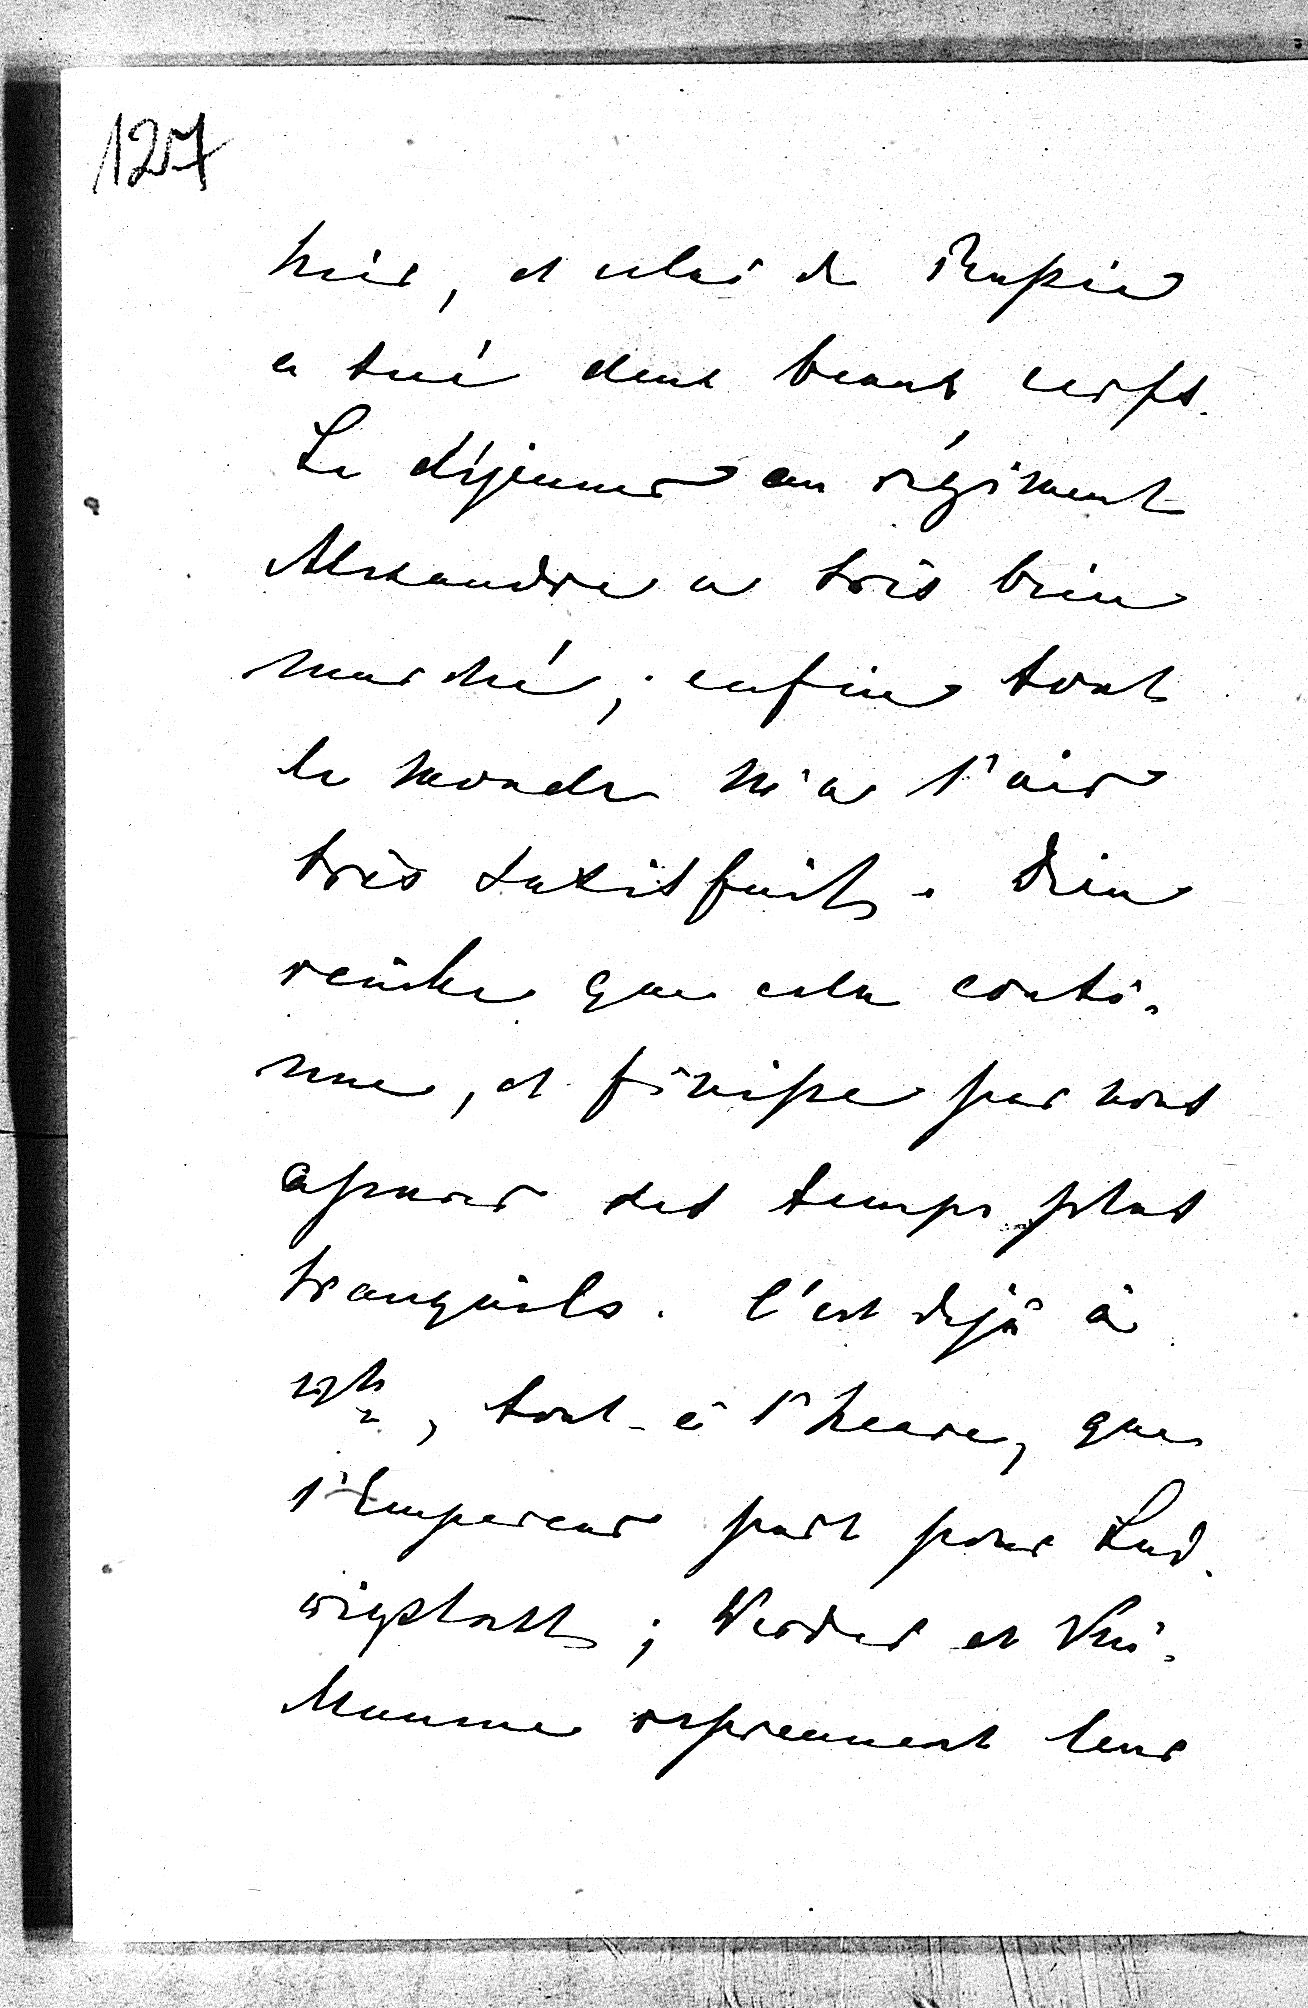 127
hier, et celui de Russie
a tué deux beaux cerfs.
Le déjeuner au régiment
Alexandre a très bien
marché; enfin tout
le monde m'a l'air
très satisfait. Dieu
veuille que cela conti-
nue, et finisse par nous
assurer des temps plus
tranquils. C'est déjà à
tout-à l'heure, que
l'Empereur part pour Lud-
wigslust; Werder et
Maman reprennent leur